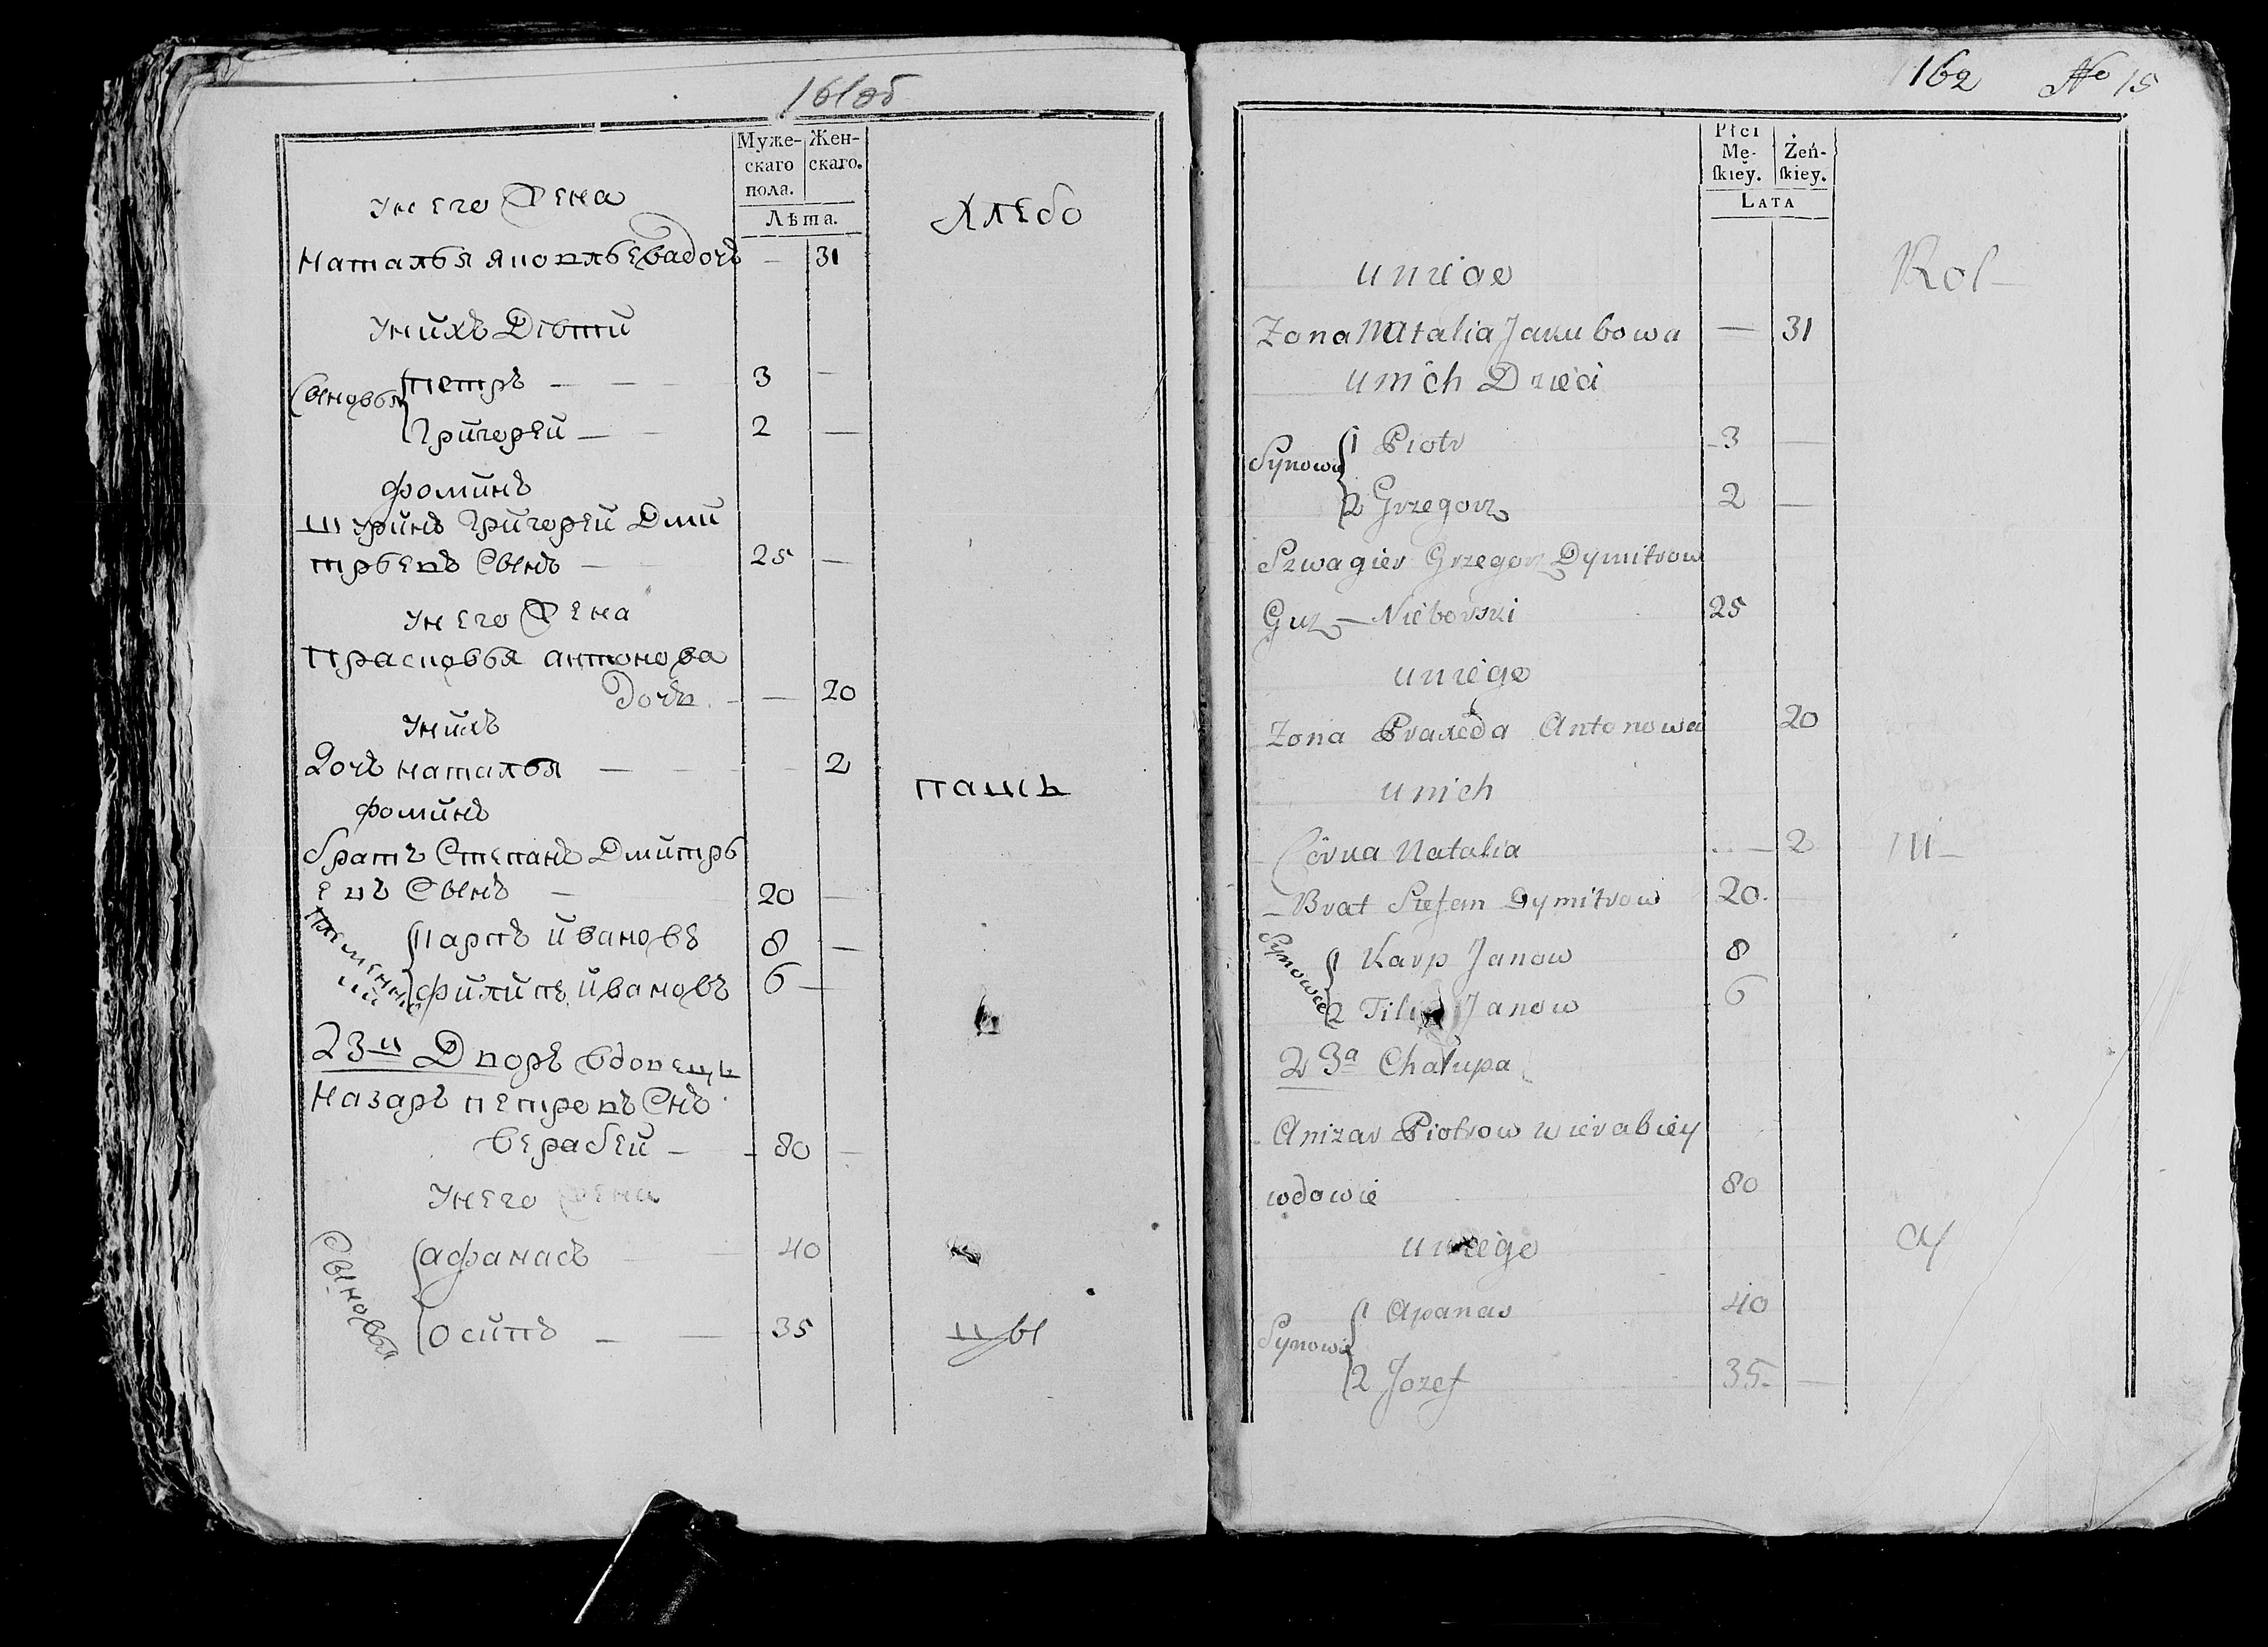 161об
Муже- Жен-
скаго скаго.
пола.
Лѣта.
унего Жена
Хлебо
Наталья Яковльева дочь — 31
унихъ Дѣти
Сыновья Петръ — — 3 —
Григореи — — 2 —
Фоминъ
шуринъ Григореи Дми
трьевъ Сынъ — 25 —
унего Жена
Прасковья антонова
Дочь — — 20
унихъ
Дочь наталья — — — 2
пашь
Фоминъ
братъ Степанъ Дмитрь
евъ Сынъ — 20 —
племянники Карпъ ивановъ 8 —
Филипъ ивановъ 6 —
23й Дворъ вдовецъ
Назаръ петровъ Снъ
верабеи — 80 —
унего Жена
Сыновья афанасъ — 40
Осипъ — — 35
цы
162 № 15
Płci
Mę- Żeń-
ſkiey. ſkiey.
LATA
uniego
Rol-
Zona Natalia Jakubowa — 31
unich Dzieci
Synowie 1 Piotr 3 —
2 Grzegorz 2 —
Szwagier Grzegorz Dymitrow
Guz — Nieborski 25
uniego
Zona Praxeda Antonowa 20
unich
Córka Natalia — 2
ni-
Brat Stefan Dymitrow 20.
Synowce 1 Karp Janow 8
2 Filip Janow 6
23a Chałupa
Anizar Piotrow Wierabiey
wdowie 80
uniego
cy
Synowie 1 Apanas 40
2 Jozef 35. —